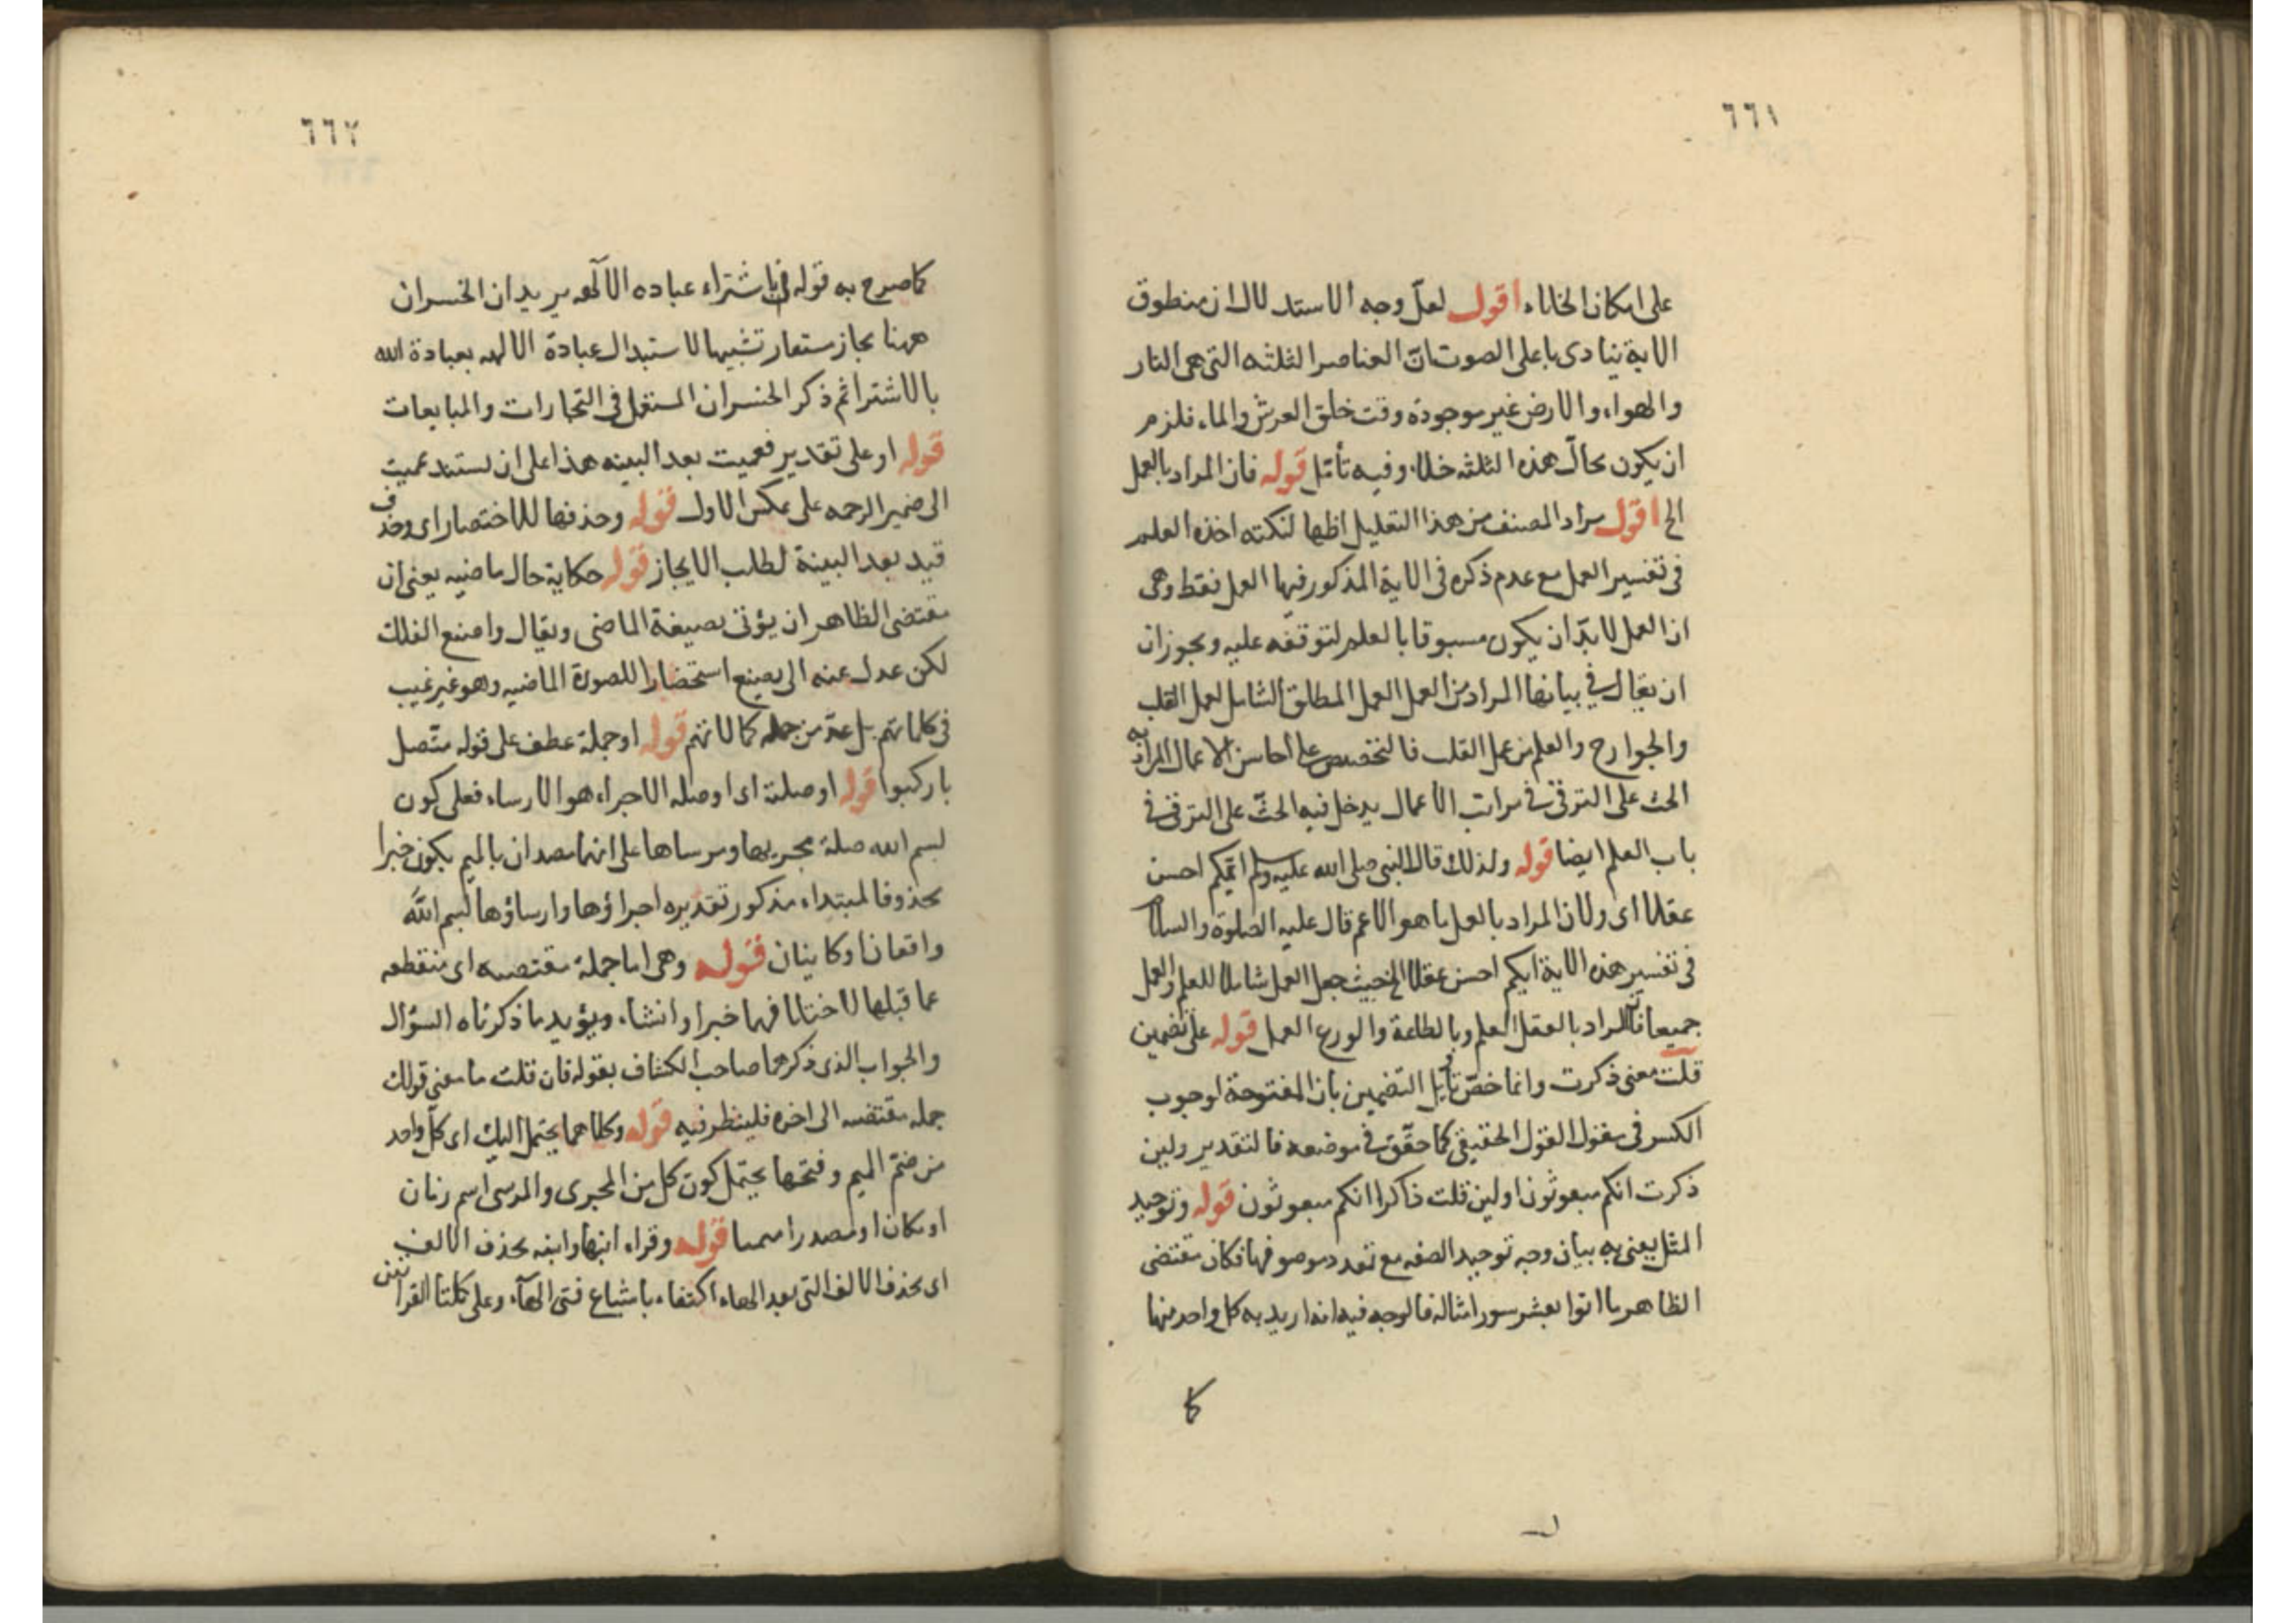 ٦٦١
على امكان الخلاء اقول لعلّ وجه الاستدلال ان منطوق
الاية ينادى باعلى الصوت انّ العناصر الثلثه التى هى النار
والهواء والارض غير موجودة وقت خلق العرش والماء فلزم
ان يكون محالّ هذه الثلثه خلاء وفيه تأمّل قوله فان المراد بالعمل
الخ اقول مراد المصنف من هذا التعليل اظها لنكته اخذه العلم
فى تفسير العمل مع عدم ذكره فى الاية المذكور فيها العمل فقط وهى
ان العمل لا بدّ ان يكون مسبوقا بالعلم لتوقفه عليه ويجوز ان
ان يقال فى بيانها المراد من العمل العمل المطلق الشامل لعمل القلب
والجوارح والعلم من عمل القلب فالتخصيص على احاسن الاعمال المراد به
الحث على الترقى فى مراتب الاعمال يدخل فيه الحثّ على الترقى فى
باب العلم ايضا قوله ولذلك قال النبى صلى الله عليه وسلم ايّكم احسن
عقلا اى ولان المراد بالعمل ما هو الاعم قال عليه الصلوة والسلام
فى تفسير هذه الاية ايكم احسن عقلا الخ حيث جعل العمل شاملا للعلم والعمل
جميعا فانّ المراد بالعقل العلم وبالطاعة والورع العمل قوله على تضمين
قلت معنى ذكرت وانما خصّ تأويل التضمين بان المفتوحة لوجوب
الكسر فى مقول القول الحقيقى كما حقّق فى موضعه فالتقدير ولين
ذكرت انكم مبعوثون او لين قلت ذاكرا انكم مبعوثون قوله وتوحيد
المثل يعنى به بيان وجه توحيد الصفه مع تعدد موصوفها فكان مقتضى
الظاهر ما اتوا بعشر سور امثاله فالوجه فيه انه اريد به كل واحد منها
كما
٦٦٢
كما صرح به قوله فى باشتراء عباده الآلهه يريد ان الخسران
ههنا مجاز مستعار تشبيها لاستبدال عبادة الالهه بعبادة الله
بالاشترا ثم ذكر الخسران المستعمل فى التجارات والمبايعات
قوله او على تقدير فعميت بعد البينه هذا على ان يستند عميت
الى ضمير الرحمه على عكس الاول قوله وحذفها للاختصار اى وحذف
قيد بعد البينة لطلب الايجاز قوله حكاية حال ماضيه يعنى ان
مقتضى الظاهر ان يؤتى بصيغة الماضى ويقال وا صنع الفلك
لكن عدل عنه الى يصنع استحضارا للصورة الماضيه وهو غير غيب
فى كلماتهم بل عدّ من جمله كمالاتهم قوله او جملة عطف على قوله متّصل
باركبوا قوله او صلة اى او صله الاجراء هو الارساء فعلى كون
بسم الله صلة مجريها ومرساها على انهما مصدان بالميم يكون خبرا
محذوفا لمبتداء مذكور تقديره اجراؤها وارساؤها بسم الله
واقعان او كاينان قوله وهى اما جملة مقتضبه اى منقطعه
عما قبلها لاختلافهما خبرا وانشاء ويؤيد ما ذكرناه السؤال
والجواب الذى ذكرهما صاحب الكشاف بقوله فان قلت ما معنى قولك
جمله مقتضبه الى اخره فلينظر فيه قوله وكلاهما يحتمل اليك اى كلّ واحد
من ضمّ الميم وفتحها يحتمل كون كل من المجرى والمرسى اسم زمان
او مكان او مصدرا ميميا قوله وقراء ابنها وابنه بحذف الالف
اى بحذف الالف التى بعد الهاء اكتفاء باشباع فتى الهآء وعلى كلتا القراتين